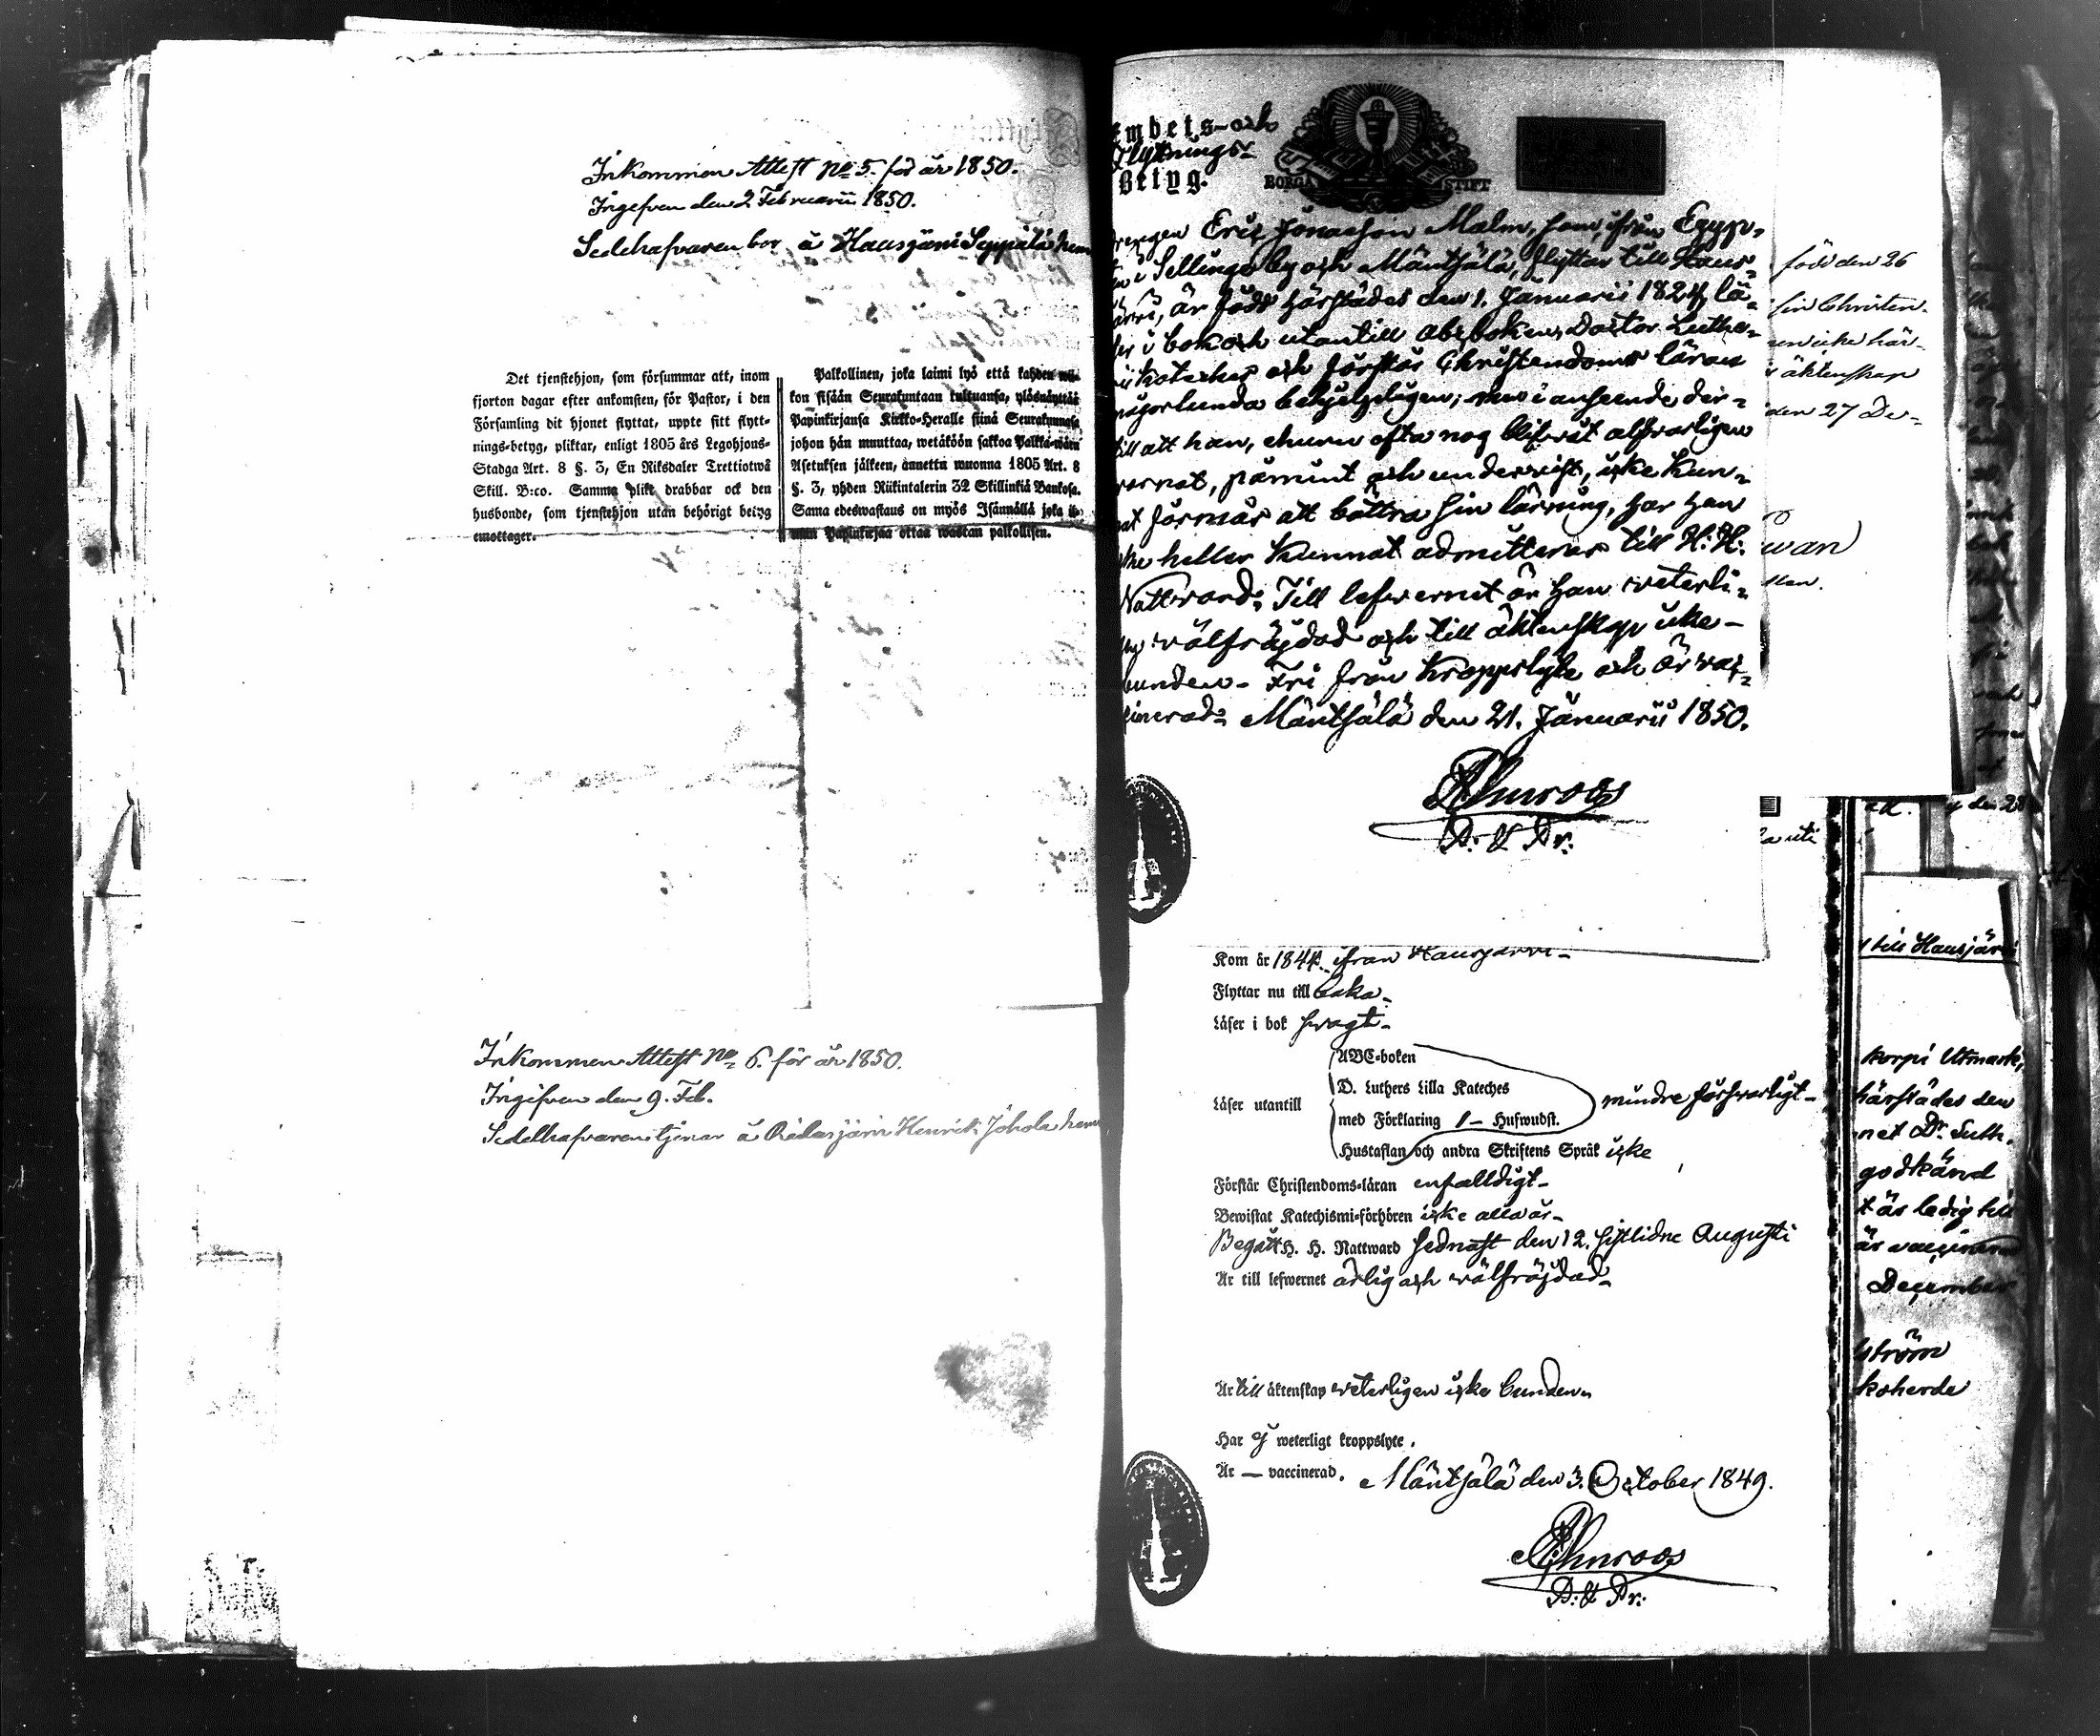 Inkommen Attest No 5. för år 1850.
Ingifven den 2 Februarii 1850.
Sedelhafvaren bor å Hausjärvi Seppälä hem
Det tjenstehjon, som försummar att, inom
fjorton dagar efter ankomsten, för Pastor, i den
Församling dit hjonet flyttat, uppte sitt flytt-
nings-betyg, pliktar, enligt 1805 års Legohjons-
Stadga Art. 8 §. 3, En Riksdaler Trettiotwå
Skill. B:co. Samma plikt drabbar ock den
husbonde, som tjenstehjon utan behörigt betyg
emottager.
Palkollinen, joka laimi lyö että kahden wii-
kon sisään Seurakuntaan tultuansa, ylösnäyttää
Papinkirjansa Kirkko-Heralle siinä Seurakunnasa
johon hän muuttaa, wetäköön sakkoa Palkka-wäen
Asetuksen jälkeen, annettu wuonna 1805 Art. 8
§. 3, yhden Riikintalerin 32 Skillinkiä Bankosa.
Sama edeswastaus on myös Isännällä joka il-
man Papinkirjaa ottaa wastan palkollisen.
Inkommen Attest No 6. för år 1850.
Ingifven den 9. Feb.
Sedelhafvaren tjenar å Ridasjärvi Henrik Johola hem
Embets- och
Flyttnings-
Betyg.
BORGÅ STIFT
Drengen Eric Jonasson Malm, som ifrån Egyp-
i Sellinge by och Mäntsälä, flyttar till Haus-
järvi, är född härstädes den 1. Januarii 1824, lä-
ser i bok och utantill abcboken, Doctor Luthe-
rii Kateches och förstår Christendoms läran
någorlunda behjelpligen; men i anseende der-
till att han, ehuru ofta nog blifvit alfvarligen
varnat, påmint och undervist, icke kun-
nat förmås att bättra sin läsning, har han
icke heller kunnat admitteras till H: H:
Nattvard; Till lefvernet är han veterli-
gen välfräjdad och till äktenskap icke
bunden. Fri från kroppslyte och är vac-
cinerad; Mäntsälä den 21. Januarii 1850.
Ahnroos
född den 26
sin Christen-
icke här-
äktenskap
den 27 De-
Kom år 1844 ifrån Hausjärvi
Flyttar nu till baka
Läser i bok svagt
Läser utantill
ABC-boken
D. Luthers Lilla Kateches
med Förklaring 1 – Hufwudst.
mindre försvarligt
Hustaflan och andra Skriftens Språk icke
Förstår Christendoms-läran enfalldigt
Bewistat Katechismi-förhören icke alla år
Begått H. H. Nattward sednast den 12. sistlidne Augusti
Är till lefwernet ärlig och välfräjdad
Är till äktenskap veterligen icke bunden
Har ej weterligt kroppslyte.
Är — vaccinerad. Mäntsälä den 3. October 1849.
Ahnroos
till Hausjärvi
korpi Utmark,
härstädes den
net Dr. Luth.
godkänd
t är ledig till
är vaccinerad
December
ström
koherde